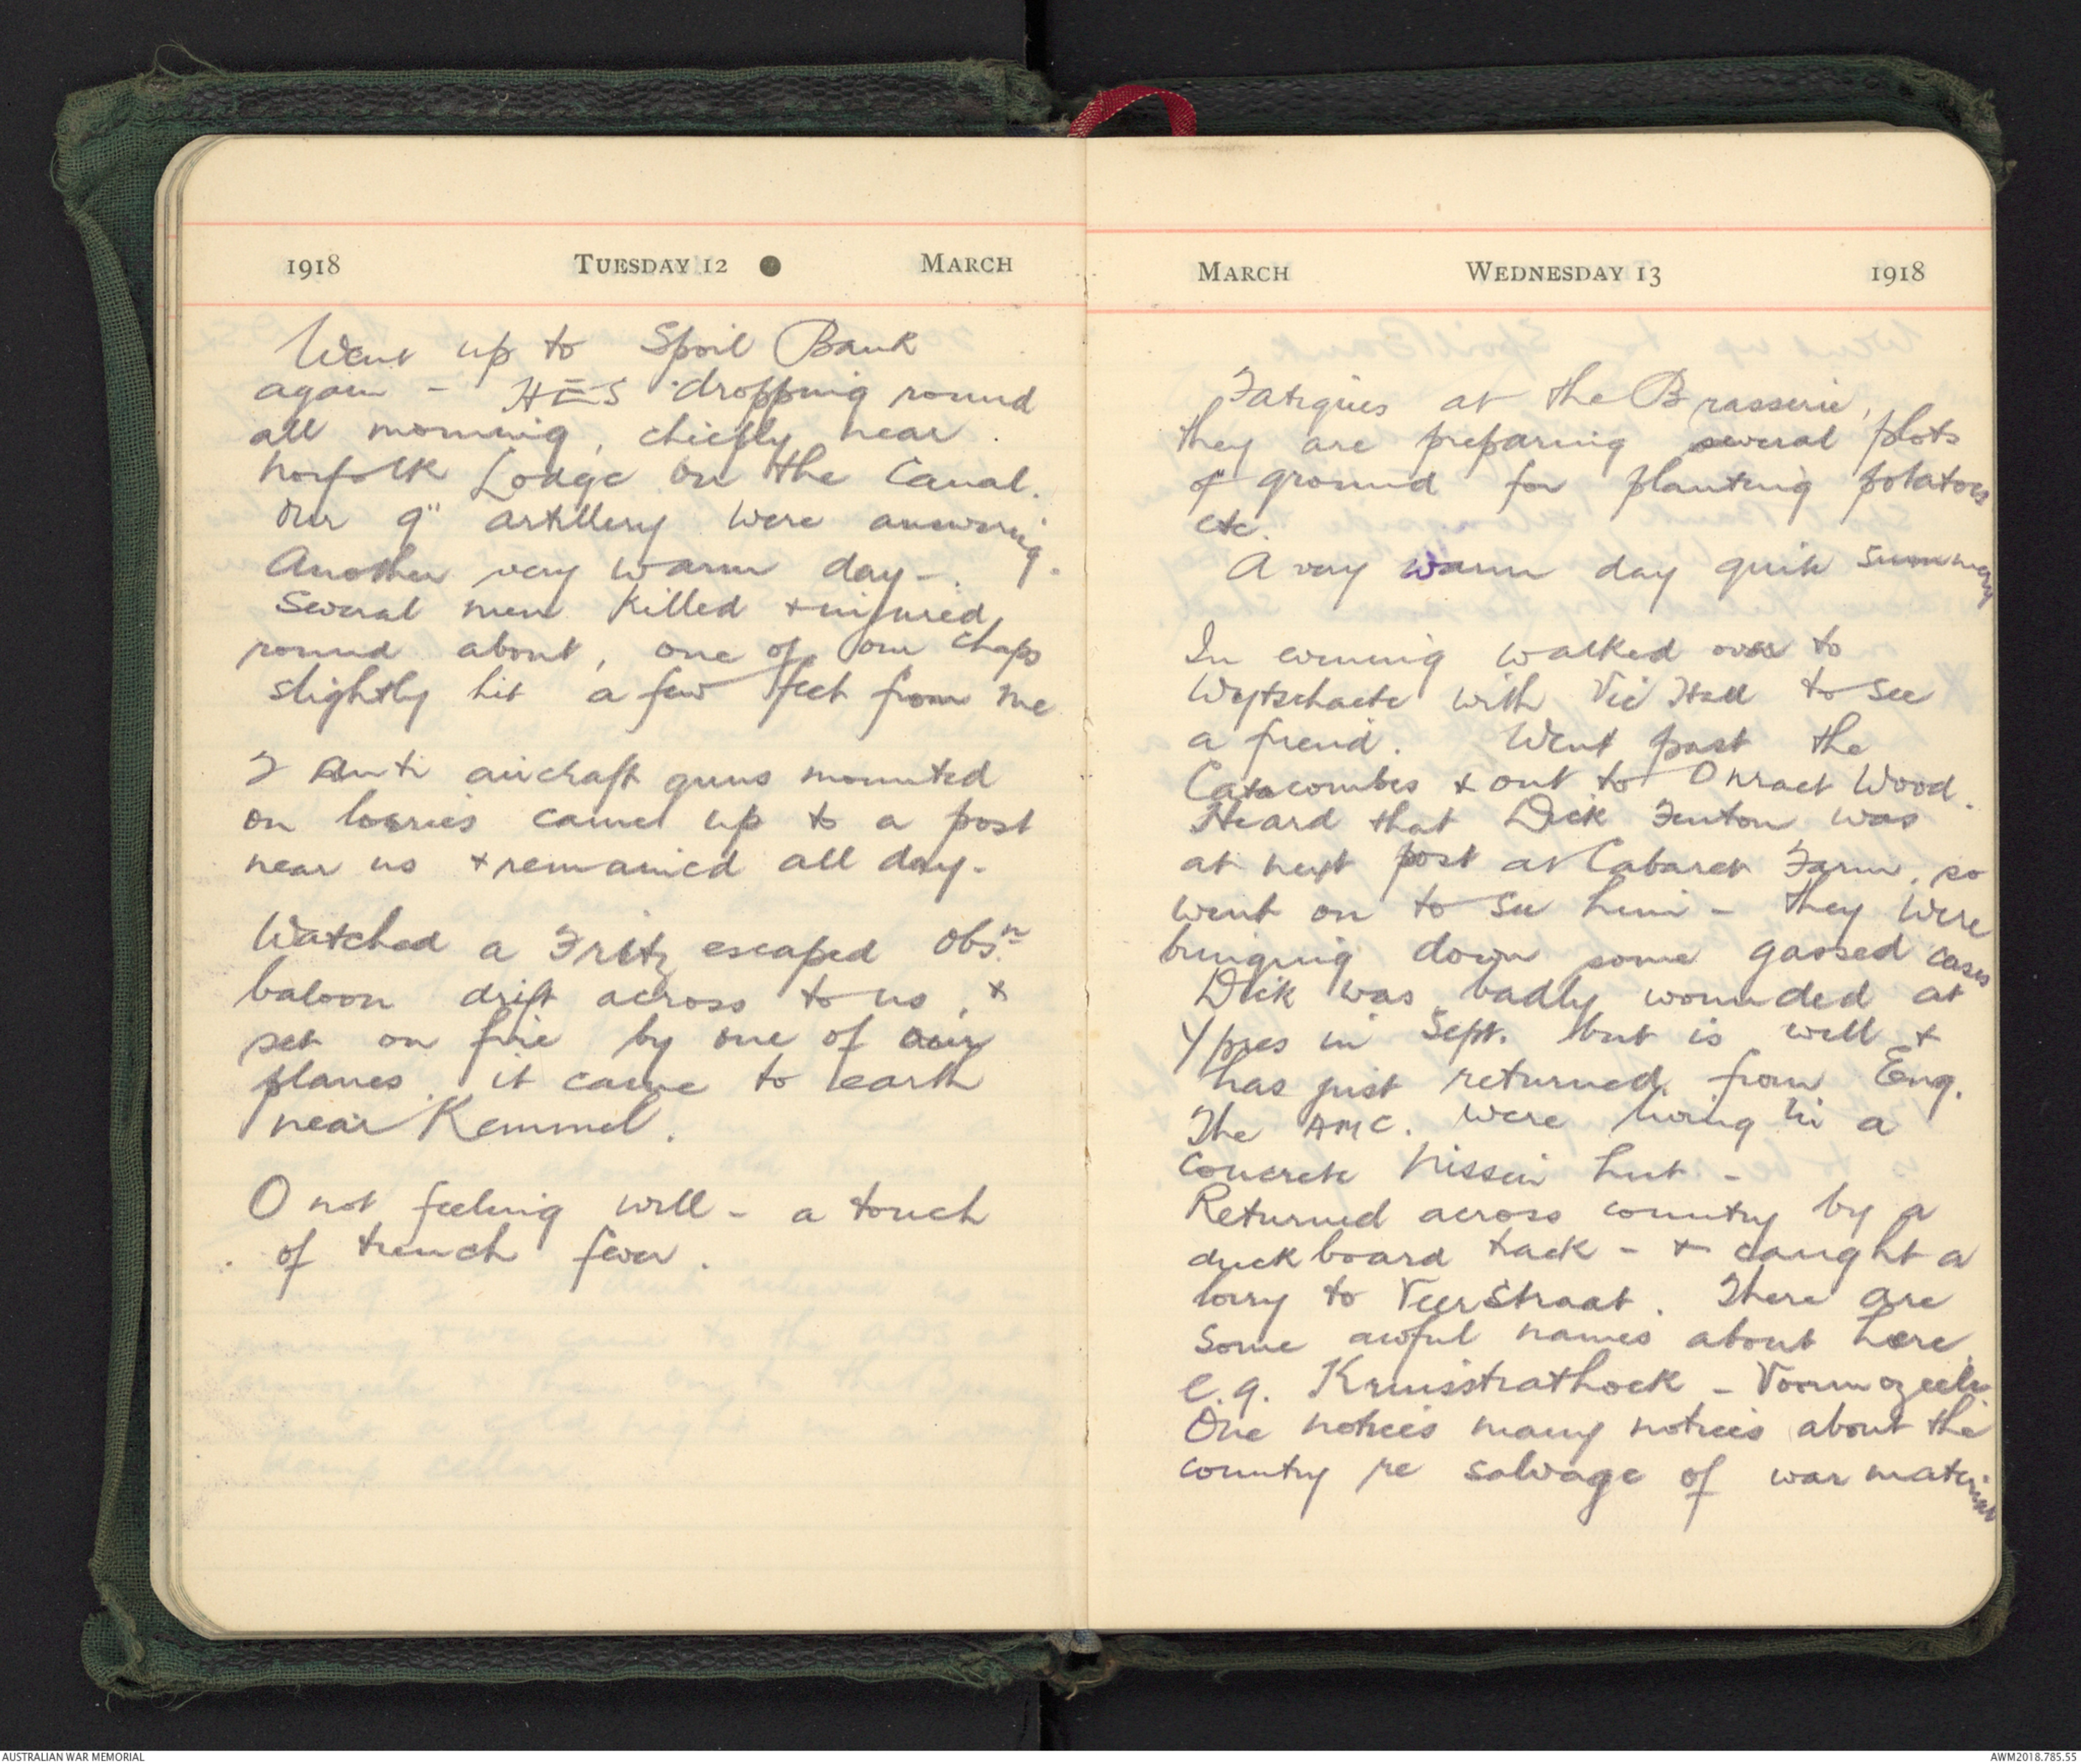 1918 TUESDAY 12 ● MARCH
Went up to Spoil Bank
again - HES dropping round
all morning, chiefly near
Norfolk Lodge on the Canal.
Our 9" artillery were answering.
Another very warm day -.
Several men killed + injured
round about, one of our chaps
slightly hit a few feet from me
2 Anti aircraft guns mounted
on lorries came up to a post
near us + remained all day -
Watched a Fritz escaped obsn.
baloon drift across to us, +
set on fire by one of our
planes, it came to earth
near Kemmel.
O not feeling well - a touch
of trench fever.
MARCH WEDNESDAY 13 1918
Fatigues at the Brasserie,
they are preparing several plots
of ground for planting potatoes
etc.
A very warm day quite summery
In evening walked over to
Wytschaete with Vic Hall to see
a freind. Went past the
Catacombes + out to Onraet Wood.
Heard that Dick Fenton was
at next post at Cabaret Farm, so
went on to see him - they were
bringing down some gassed cases
Dick was badly wounded at
Ypres in Sept. but is well +
has just returned from Eng.
The AMC. were living in a
concrete Nissen hut -
Returned across country by a
duckboard tack - + caught a
lorry to Veerstraat. There are
some awful names about here,
e.g. Kruisstrathoek - Voormozeele
One notices many notices about the
country re salvage of war material
AUSTRALIAN WAR MEMORIAL
AWM2018.785.55